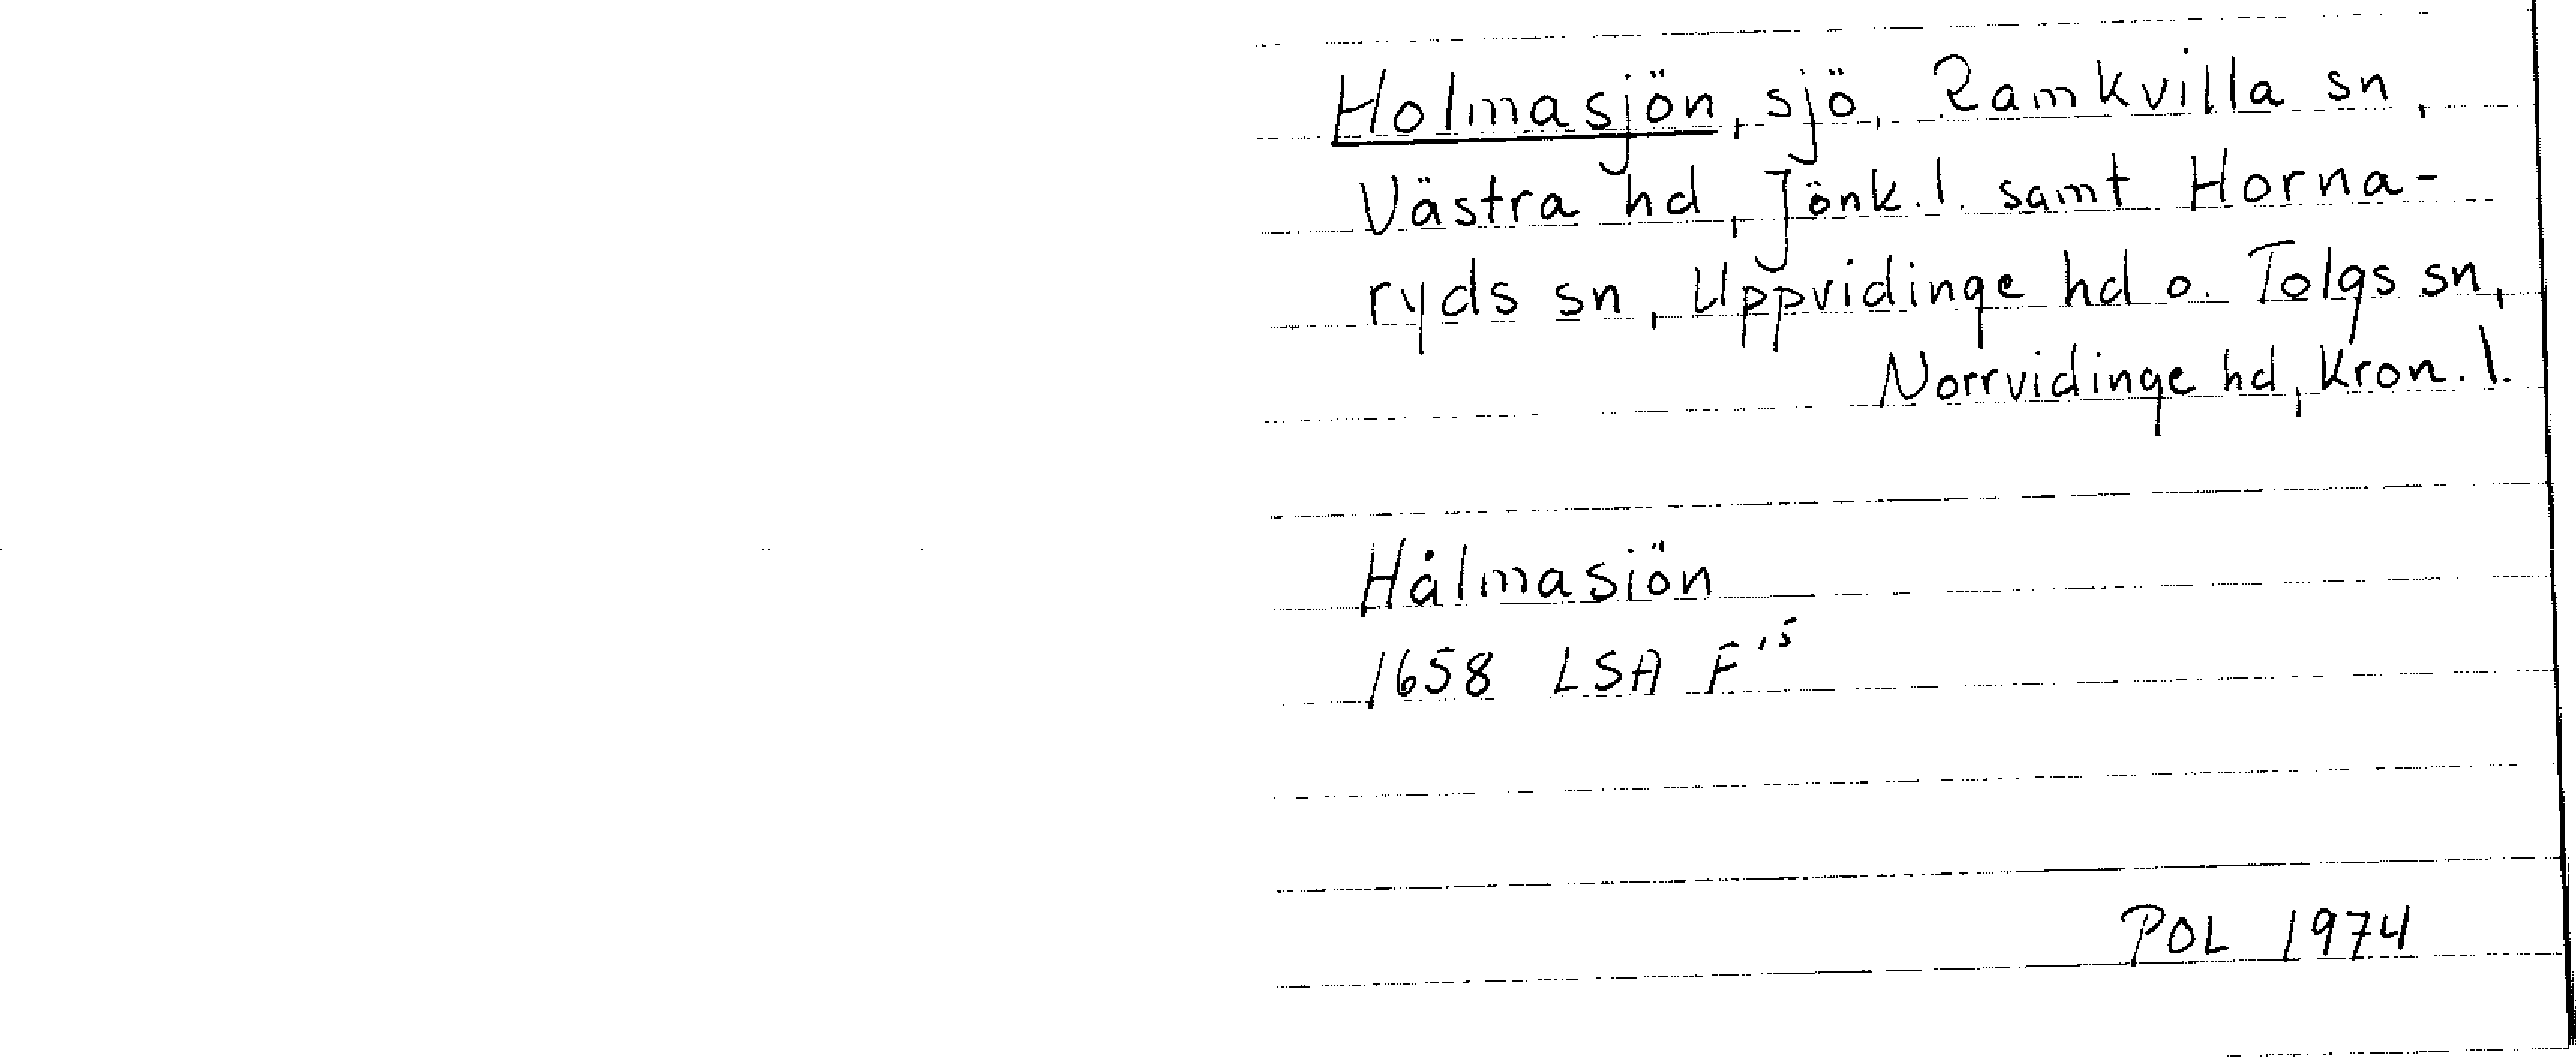 Holmasjön, sjö, Ramkvilla sn,
Västra hd, Jönk. l. samt Horna-
ryds sn, Uppvidinge hd o. Tolgs sn,
Norrvidinge hd, Kron. l.
Hålmasiön
1658 LSA F 15
POL 1974